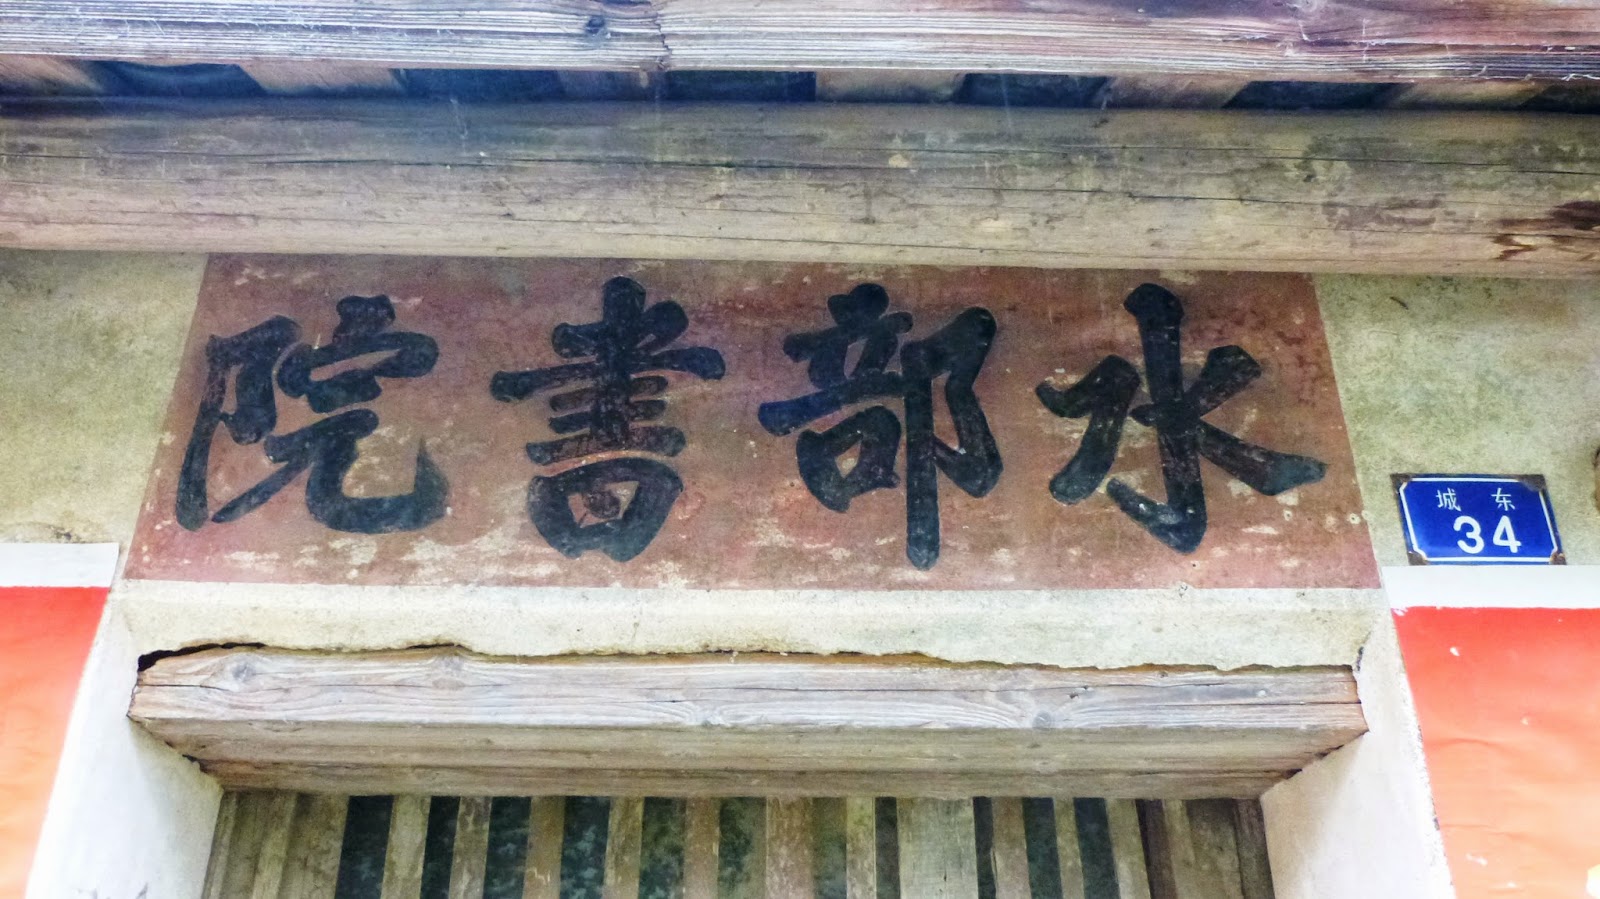 水部書院
城东
34